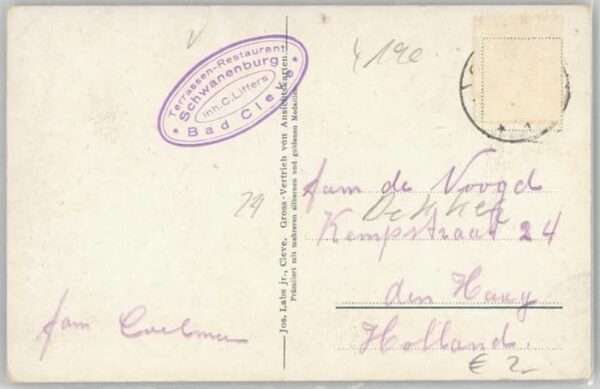 Terrassen-Restaurant
Schwanenburg
Inh. C. Liffers
* Bad Cleve *
Jos. Labs jr., Cleve. Gross-Vertrieb von Ansichtkarten
Prämiiert mit mehreren silbernen und goldenen Medaillen
4190
24
Fam de Voogd
Dekker
Kempstraat 24
den Haag
Holland.
Fam
€ 2,-